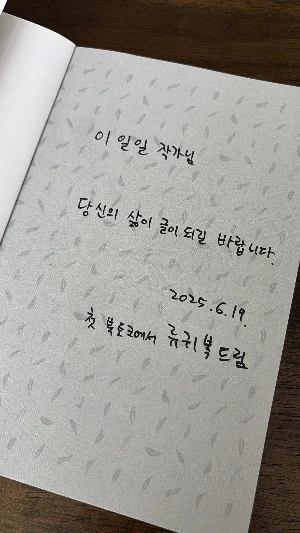 이 일일 작가님
당신의 삶이 글이 되길 바랍니다.
2025.6.19.
첫 북토크에서 류귀복 드림